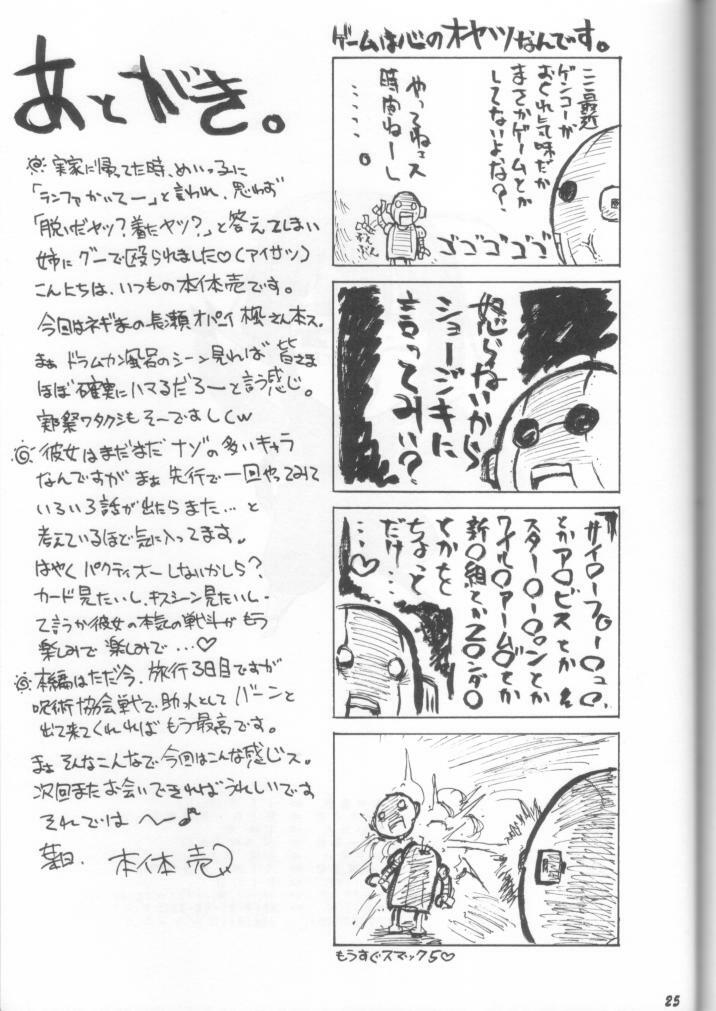 あとがき。
実家に帰ってた時、めいっ子に
「ランファかいてー」と言われ、思わず
「脱いだヤツ?着たヤツ?」と答えてしまい
姉にグーで殴られました♡(アイサツ)
こんにちは、いつもの本体売です。
今回はネギまの長瀬オパイ楓さん本ス。
まぁ ドラムカン風呂のシーン見れば 皆さま
ほぼ確実にハマるだろーと言う感じ。
実際ワタクシもそーですしw
彼女はまだまだ ナゾの多いキャラ
なんですが まぁ 先行で一回やってみて
いろいろ話が出たらまた…と
考えているほど気に入ってます。
はやく パクティオーしないかしら?
カード見たいし、キスシーン見たいし、
て言うか彼女の本気の戦斗がもう
楽しみで楽しみで…♡
本編はただ今、旅行3日目ですが
呪術協会戦で助っ人として バーンと
出て来てくれればもう最高です。
まぁ そんなこんなで今回はこんな感じス。
次回またお会いできればうれしいです
それでは へ〜♪
本体 売
ゲームは心のオヤツなんです。
ここ最近
ゲンコーが
おくれ気味だか
まさかゲームとか
してないよな?
やってねェス
時間ねーし
……。
ゴゴゴゴゴ
怒らないから
ショージキに
言ってみい?
サイ〇ーフ〇ー〇ュ〇、
とかア〇ビスとか
スター〇ー〇ョンとか
ワイル〇アーム〇とか
新〇組とかZ〇ンダ〇
とかをと
ちょっと
だけ…
…♡
もうすぐスマック5♡
25